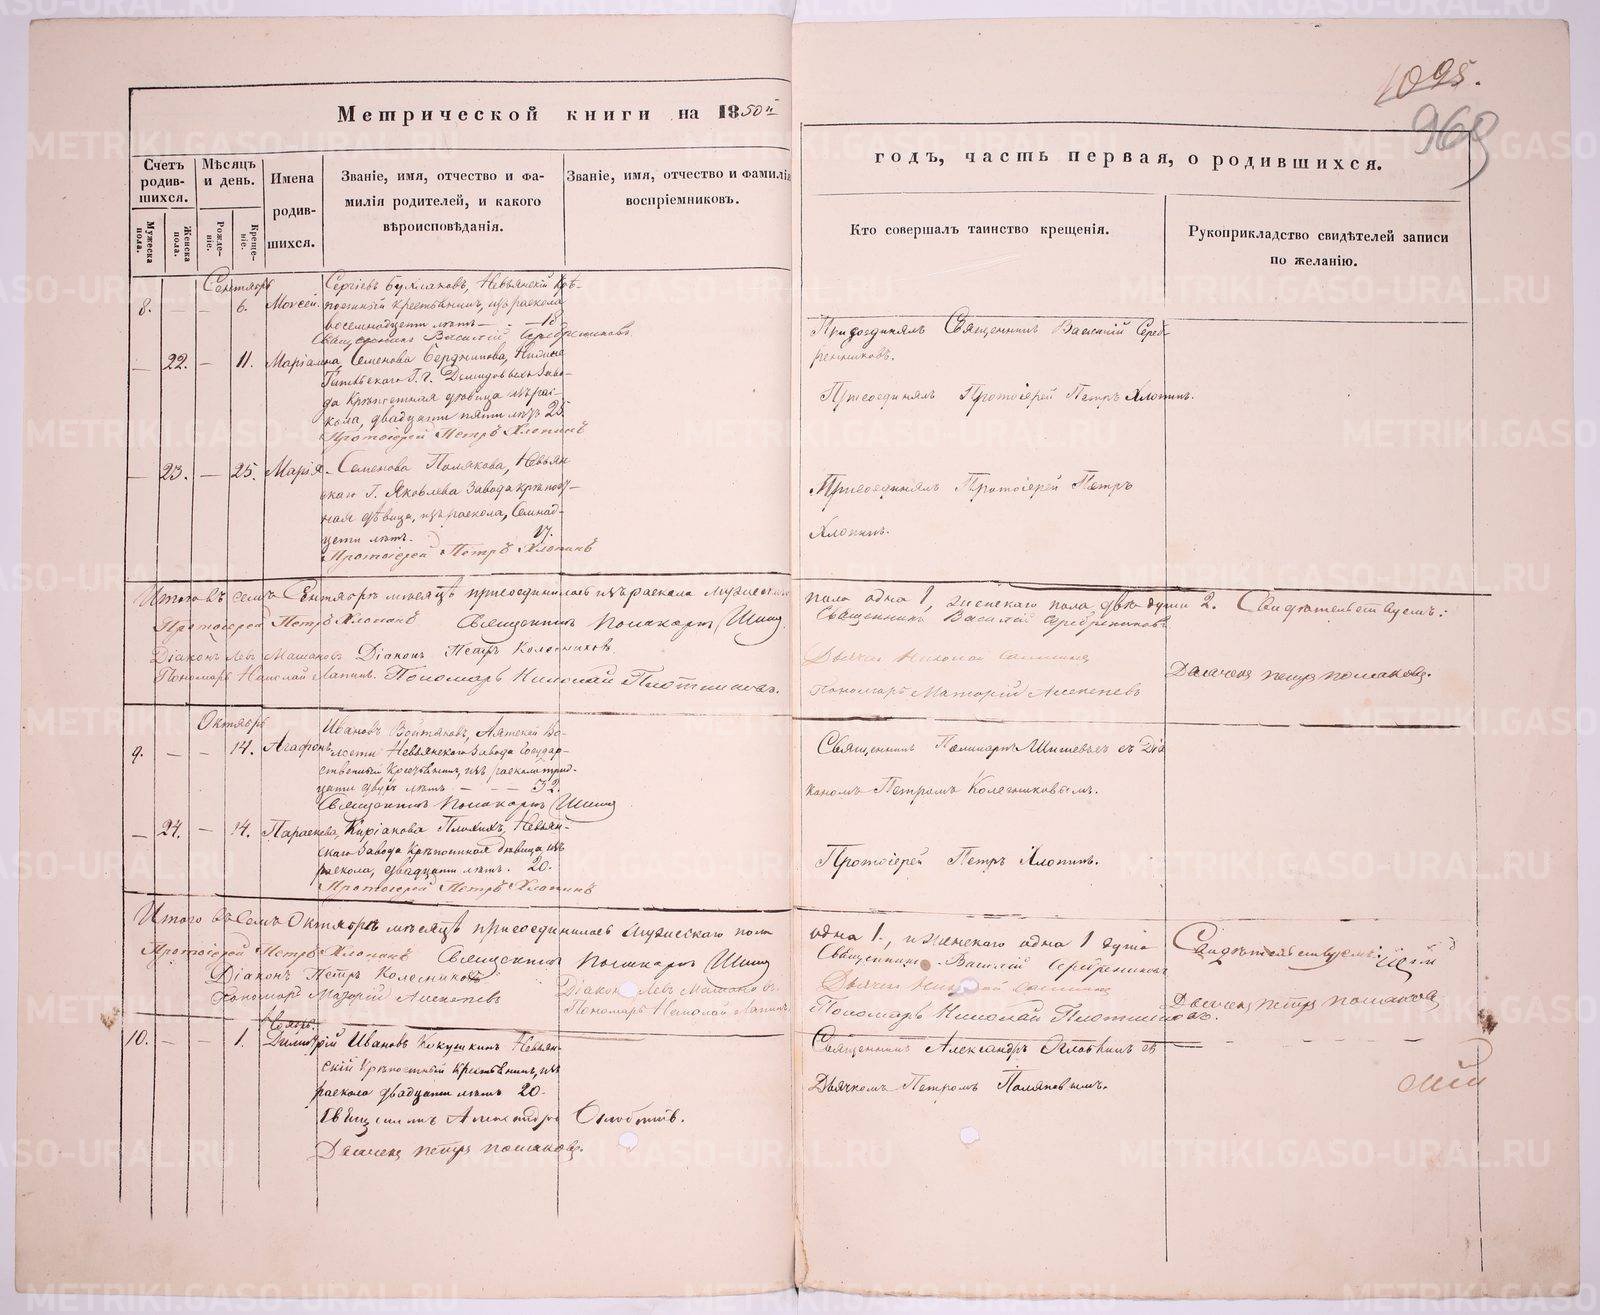 1095.
969
Метрической книги на 1850й
годъ, часть первая, о родившихся.
Счетъ родив-шихся.
Мѣсяцъ и день.
Имена родив-шихся.
Званіе, имя, отчество и фа-
милія родителей, и какого
вѣроисповѣданія.
Званіе, имя, отчество и фамилія
воспріемниковъ.
Кто совершалъ таинство крещенія.
Рукоприкладство свидѣтелей записи
по желанію.
Мужеска пола.
Женска пола.
Рожде-ніе.
Креще-ніе.
Сентябрь
8. — — 6. Моисей
Сергіевъ Невьянскій крѣ-
постный крестьянинъ, изъ раскола
восемнадцати лѣтъ — 18
Священникъ Василій Серебренниковъ
Присоединялъ Священникъ Василій Сереб-
ренниковъ.
— 22. — 11. Маріамна, Семенова Бердникова, Нижне
Тагильскаго Г. Г. Демидовыхъ Заво-
да Крѣпостная дѣвица изъ рас-
кола, двадцати пяти лѣтъ 25.
Протоіерей Петръ Хлопинъ
Присоединялъ Протоіерей Петръ Хлопинъ.
— 23. — 25. Марія Семенова Полякова, Невьян
скаго Г. Яковлева Завода крѣпост-
ная дѣвица, изъ раскола, Семнад-
цати лѣтъ. 17.
Протоіерей Петръ Хлопинъ
Присоединялъ Протоіерей Петръ
Хлопинъ.
Итого въ семъ Сентябрѣ мѣсяцѣ присоединилось изъ раскола мужеска
пола одна 1, женскаго пола двѣ души 2. Свидѣтельствуемъ:
Протоіерей Петръ Хлопинъ Священникъ Поликарпъ
Священникъ Василій Серебренниковъ
Діаконъ Левъ Машановъ Діаконъ Петръ Колесниковъ.
Дьячекъ Николай
Пономарь Николай Лапинъ. Пономарь Николай Плотниковъ.
Пономарь
Дьячекъ Петръ Поляковъ.
Октябрь
9. — — 14. Агафонъ
Ивановъ Войтяковъ, Аятской Во-
лости Невьянскаго Завода Государ-
ственный Крестьянинъ, изъ раскола трид-
цати двухъ лѣтъ — — — 32.
Священникъ Поликарпъ
Священникъ Поликарпъ съ Діа
кономъ Петромъ Колесниковымъ.
— 24. — 14. Параскева, Киріакова Невьян-
скаго Завода Крѣпостная дѣвица, изъ
раскола, двадцати лѣтъ. 20.
Протоіерей Петръ Хлопинъ
Протоіерей Петръ Хлопинъ.
Итого въ Семъ Октябрѣ мѣсяцѣ присоединилось Мужескаго пола
одна 1, и женскаго одна 1 душа Свидѣтельствуемъ:
Протоіерей Петръ Хлопинъ Священникъ Поликарпъ
Священникъ Василій Серебренниковъ
Діаконъ Петръ Колесниковъ Діаконъ Левъ Машановъ.
Дьячекъ Николай
Пономарь Пономарь Николай Лапинъ.
Пономарь Николай Плотниковъ.
Дьячекъ Петръ Поляковъ
Ноябрь.
10. — — 1. Димитрій Ивановъ Кокушкинъ Невьян-
скій Крѣпостный Крестьянинъ, изъ
раскола двадцати лѣтъ 20.
Священникъ Александръ
Дьячекъ Петръ Поляковъ.
Священникъ Александръ съ
Дьячкомъ Петромъ Поляковымъ.